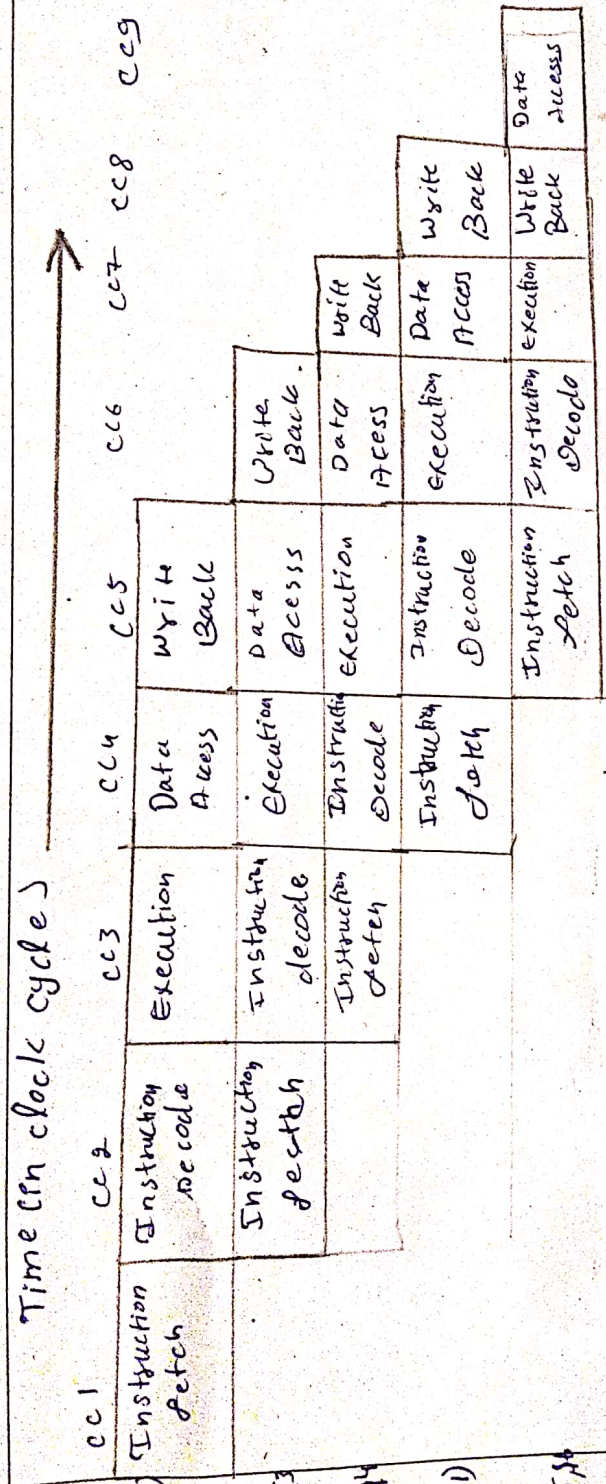 Time (in clock cycles)
CC1 CC2 CC3 CC4 CC5 CC6 CC7 CC8 CC9
Instruction fetch Instruction Decode Execution Data Access Write Back
Instruction fecth Instruction decode Execution Data Acesss Write Back.
Instruction fetch Instruction Decode Execution Data Access Write Back
Instruction fetch Instruction Decode Execution Data Access Write Back
Instruction fetch Instruction Decode execution Write Back Data Access